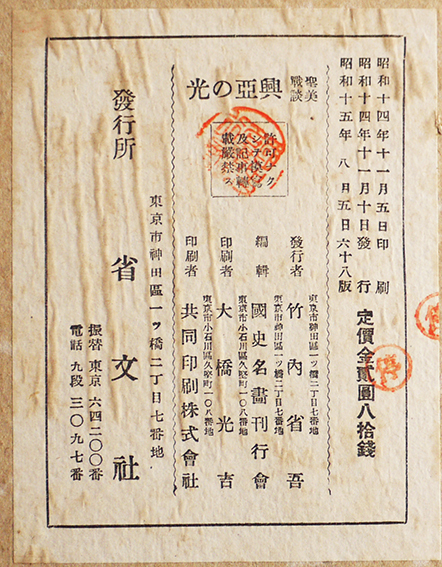 昭和十四年十一月五日印刷
昭和十四年十一月十日發行
昭和十五年 八月五日六十八版
定價金貳圓八拾錢
聖戰美談 興亞の光
許可ナク
シテ模寫
及記事轉
載嚴禁ス
東京市神田區一ッ橋二丁目七番地
發行者 竹內省吾
東京市神田區一ッ橋二丁目七番地
編輯 國史名畫刊行會
東京市小石川區久堅町一〇八番地
印刷者 大橋光吉
東京市小石川區久堅町一〇八番地
印刷者 共同印刷株式會社
東京市神田區一ッ橋二丁目七番地
發行所 省文社
振替東京六四二〇〇番
電話九段三〇九七番